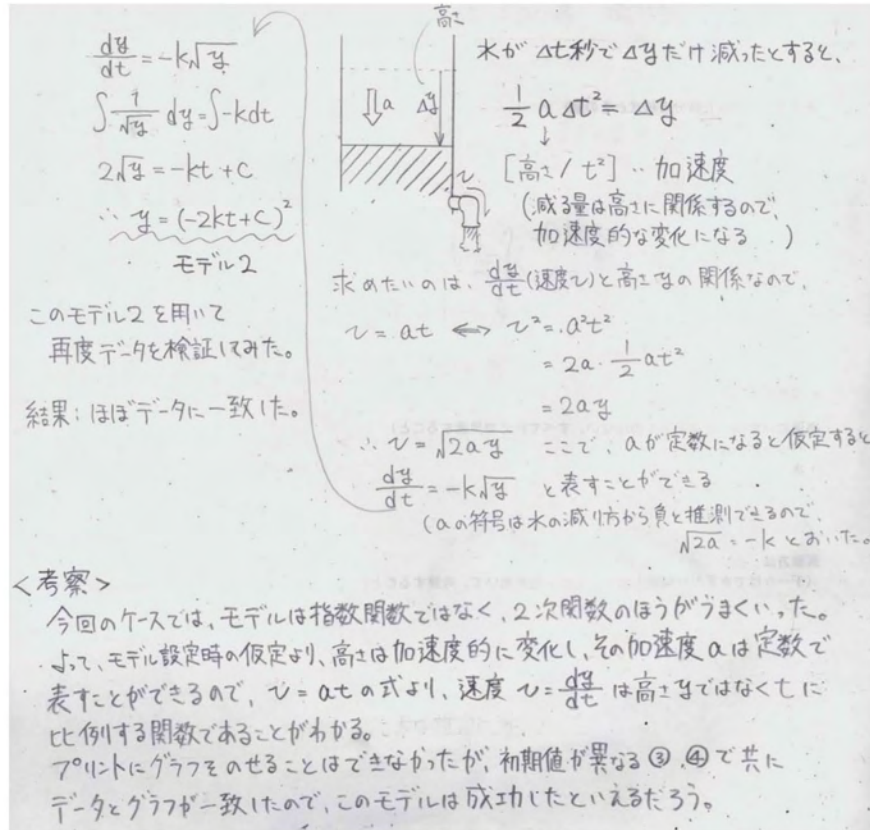 dy/dt = -k√y
∫ 1/√y dy = ∫ -k dt
2√y = -kt + C
∴ y = (-2kt + C)²
モデル2
このモデル2を用いて
再度データを検証してみた。
結果:ほぼデータに一致した。
高さ
a
Δy
v
水が Δt秒で Δyだけ減ったとすると、
1/2 a Δt² = Δy
↓
[高さ / t²] ‥ 加速度
(減る量は高さに関係するので、
加速度的な変化になる )
求めたいのは、dy/dt (速度v)と高さyの関係なので、
v = at ⟷ v² = a²t²
= 2a · 1/2 at²
= 2ay
∴ v = √2ay ここで、aが定数になると仮定すると
dy/dt = -k√y と表すことができる
(aの符号は水の減り方から負と推測できるので、
√2a = -k とおいた。
<考察>
今回のケースでは、モデルは指数関数ではなく、2次関数のほうがうまくいった。
よって、モデル設定時の仮定より、高さは加速度的に変化し、その加速度aは定数で
表すことができるので、v = at の式より、速度 v = dy/dt は高さyではなくtに
比例する関数であることがわかる。
プリントにグラフをのせることはできなかったが、初期値が異なる③、④で共に
データとグラフが一致したので、このモデルは成功したといえるだろう。